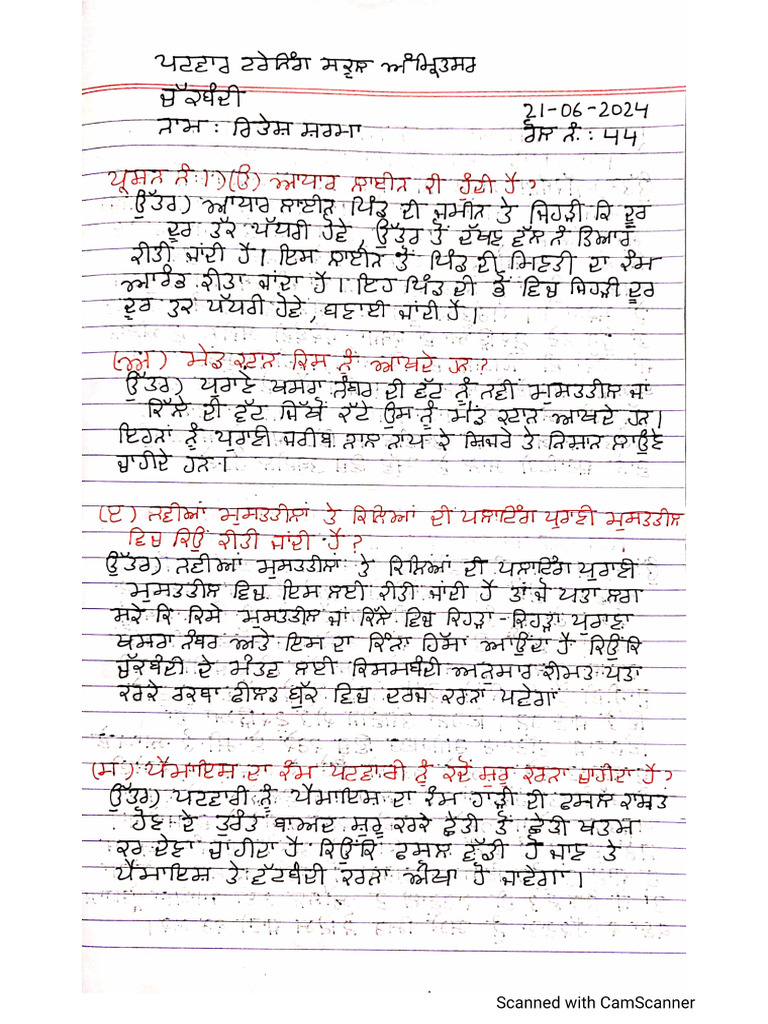 ਪਟਵਾਰ ਟਰੇਨਿੰਗ ਸਕੂਲ ਅੰਮ੍ਰਿਤਸਰ
ਚੱਕਬੰਦੀ
21-06-2024
ਨਾਮ: ਰਿਤੇਸ਼ ਸ਼ਰਮਾ
ਰੋਲ ਨੰ.: 44
ਪ੍ਰਸ਼ਨ ਨੰ: 1) (ੳ) ਆਧਾਰ ਲਾਈਨ ਕੀ ਹੁੰਦੀ ਹੈ?
ਉੱਤਰ) ਆਧਾਰ ਲਾਈਨ ਪਿੰਡ ਦੀ ਜ਼ਮੀਨ ਤੇ ਜਿਹੜੀ ਕਿ ਦੂਰ
ਦੂਰ ਤੱਕ ਪੱਧਰੀ ਹੋਵੇ, ਉੱਤਰ ਤੋਂ ਦੱਖਣ ਵੱਲ ਨੂੰ ਤਿਆਰ
ਕੀਤੀ ਜਾਂਦੀ ਹੈ। ਇਸ ਲਾਈਨ ਤੋਂ ਪਿੰਡ ਦੀ ਮਿਣਤੀ ਦਾ ਕੰਮ
ਆਰੰਭ ਕੀਤਾ ਜਾਂਦਾ ਹੈ। ਇਹ ਪਿੰਡ ਦੀ ਭੋਂ ਵਿਚ ਜਿਹੜੀ ਦੂਰ
ਦੂਰ ਤਕ ਪੱਧਰੀ ਹੋਵੇ, ਬਣਾਈ ਜਾਂਦੀ ਹੈ।
(ਅ) ਮੇਡ ਕਟਾਨ ਕਿਸ ਨੂੰ ਆਖਦੇ ਹਨ?
ਉੱਤਰ) ਪੁਰਾਣੇ ਖਸਰਾ ਨੰਬਰ ਦੀ ਵੱਟ ਨੂੰ ਨਵੀਂ ਮੁਸਤਤੀਲ ਜਾਂ
ਕਿੱਲੇ ਦੀ ਵੱਟ ਜਿੱਥੋਂ ਕੱਟੇ ਉਸ ਨੂੰ ਮੇਡ ਕਟਾਨ ਆਖਦੇ ਹਨ।
ਇਹਨਾਂ ਨੂੰ ਪੁਰਾਣੀ ਜਰੀਬ ਨਾਲ ਨਾਪ ਕੇ ਸ਼ਿਜਰੇ ਤੇ ਨਿਸ਼ਾਨ ਲਾਉਣੇ
ਚਾਹੀਦੇ ਹਨ।
(ੲ) ਨਵੀਆਂ ਮੁਸਤਤੀਲਾਂ ਤੇ ਕਿਲਿਆਂ ਦੀ ਪਲਾਟਿੰਗ ਪੁਰਾਣੀ ਮੁਸਤਤੀਲ
ਵਿਚ ਕਿਉਂ ਕੀਤੀ ਜਾਂਦੀ ਹੈ?
ਉੱਤਰ) ਨਵੀਆਂ ਮੁਸਤਤੀਲਾਂ ਤੇ ਕਿਲਿਆਂ ਦੀ ਪਲਾਟਿੰਗ ਪੁਰਾਣੀ
ਮੁਸਤਤੀਲ ਵਿਚ ਇਸ ਲਈ ਕੀਤੀ ਜਾਂਦੀ ਹੈ ਤਾਂ ਜੋ ਪਤਾ ਲਗ
ਸਕੇ ਕਿ ਕਿਸੇ ਮੁਸਤਤੀਲ ਜਾਂ ਕਿੱਲੇ ਵਿਚ ਕਿਹੜਾ-ਕਿਹੜਾ ਪੁਰਾਣਾ
ਖਸਰਾ ਨੰਬਰ ਅਤੇ ਇਸ ਦਾ ਕਿੰਨਾ ਹਿੱਸਾ ਆਉਂਦਾ ਹੈ ਕਿਉਂਕਿ
ਚੱਕਬੰਦੀ ਦੇ ਮੰਤਵ ਲਈ ਕਿਸਮਬੰਦੀ ਅਨੁਸਾਰ ਕੀਮਤ ਪਤਾ
ਕਰਕੇ ਰਕਬਾ ਫੀਲਡ ਬੁੱਕ ਵਿਚ ਦਰਜ ਕਰਨਾ ਪਵੇਗਾ
(ਸ) ਪੈਮਾਇਸ਼ ਦਾ ਕੰਮ ਪਟਵਾਰੀ ਨੂੰ ਕਦੋਂ ਸ਼ੁਰੂ ਕਰਨਾ ਚਾਹੀਦਾ ਹੈ?
ਉੱਤਰ) ਪਟਵਾਰੀ ਨੂੰ ਪੈਮਾਇਸ਼ ਦਾ ਕੰਮ ਹਾੜੀ ਦੀ ਫਸਲ ਕਾਸ਼ਤ
ਹੋਣ ਦੇ ਤੁਰੰਤ ਬਾਅਦ ਸ਼ੁਰੂ ਕਰਕੇ ਛੇਤੀ ਤੋਂ ਛੇਤੀ ਖਤਮ
ਕਰ ਦੇਣਾ ਚਾਹੀਦਾ ਹੈ ਕਿਉਂਕਿ ਫਸਲ ਵੱਡੀ ਹੋ ਜਾਣ ਤੇ
ਪੈਮਾਇਸ਼ ਤੇ ਵੱਟਬੰਦੀ ਕਰਨਾ ਔਖਾ ਹੋ ਜਾਵੇਗਾ।
Scanned with CamScanner